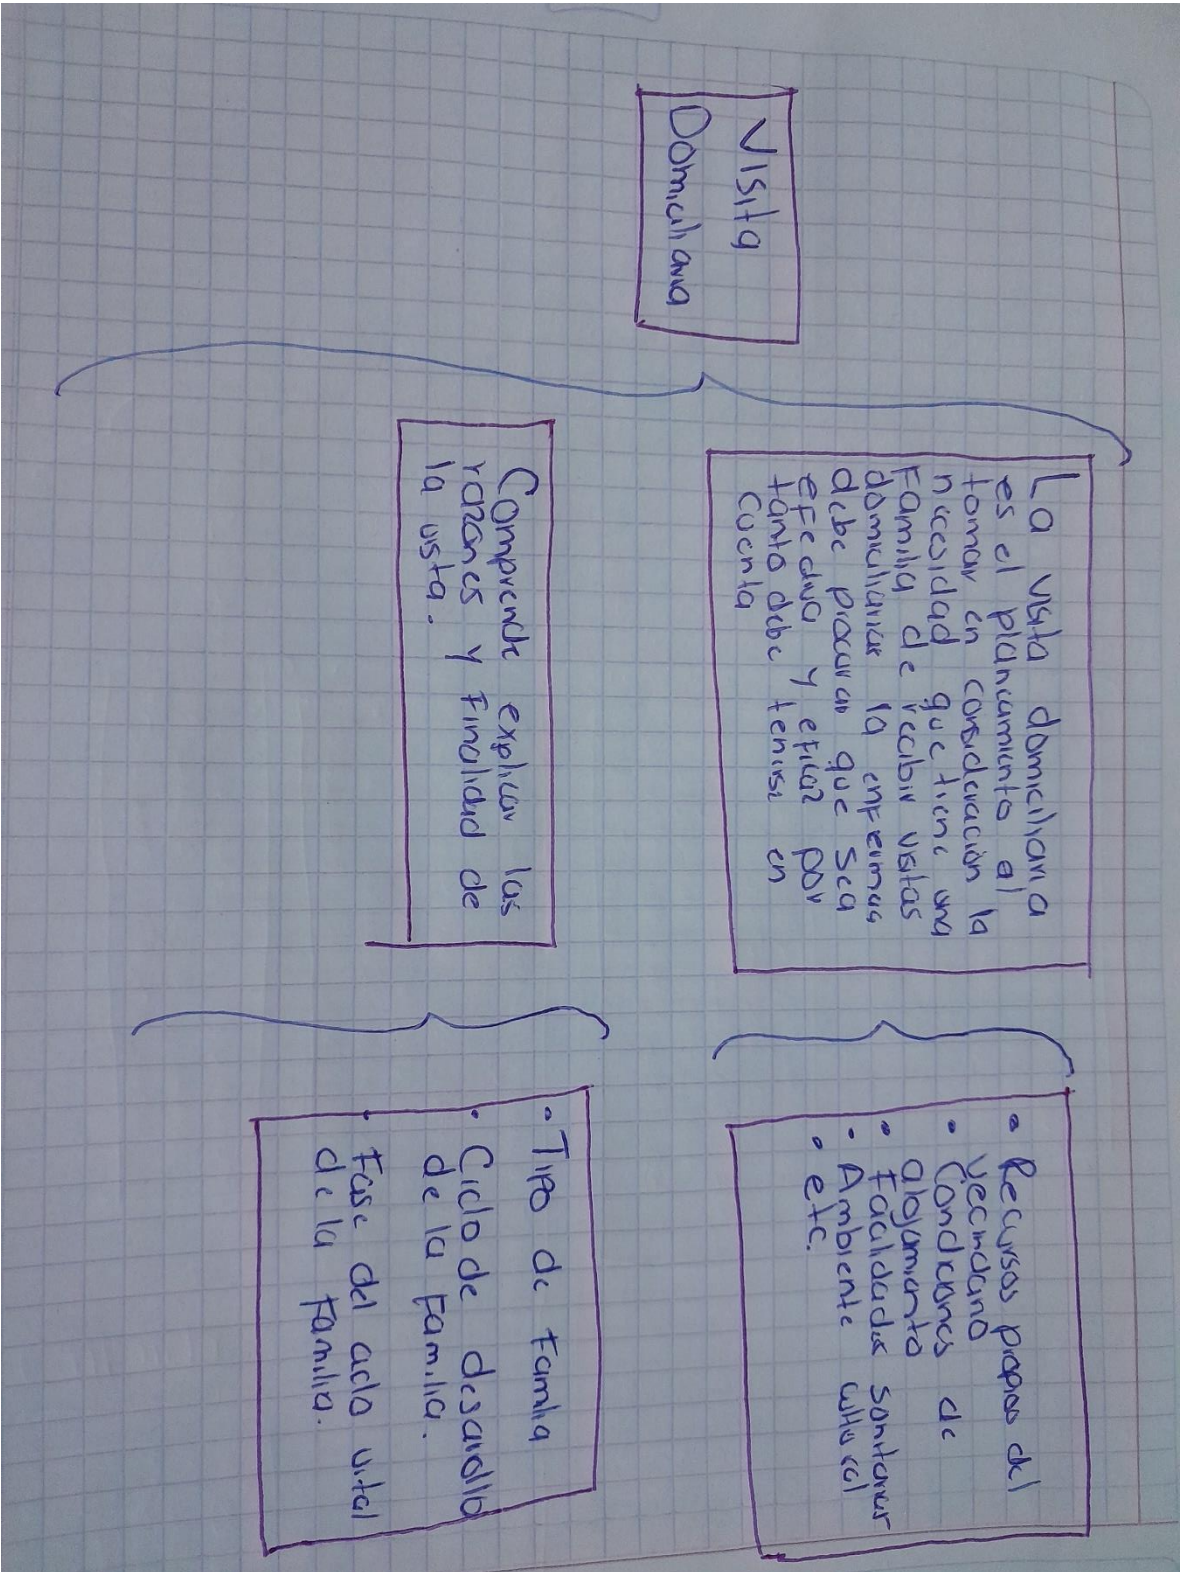 Visita
Domiciliaria
La visita domiciliaria
es el planeamiento al
tomar en consideración la
necesidad que tiene una
Familia de recibir visitas
domiciliarias la enfermera
debe procurar que sea
efectiva y eficaz por
tanto debe tenerse en
cuenta
• Recursos propios del
vecindario
• Condiciones de
alojamiento
• Facilidades sanitarias
• Ambiente cultural
• etc.
Comprende explicar las
razones y Finalidad de
la visita.
• Tipo de Familia
• Ciclo de desarrollo
de la Familia.
• Fase del ciclo vital
de la Familia.